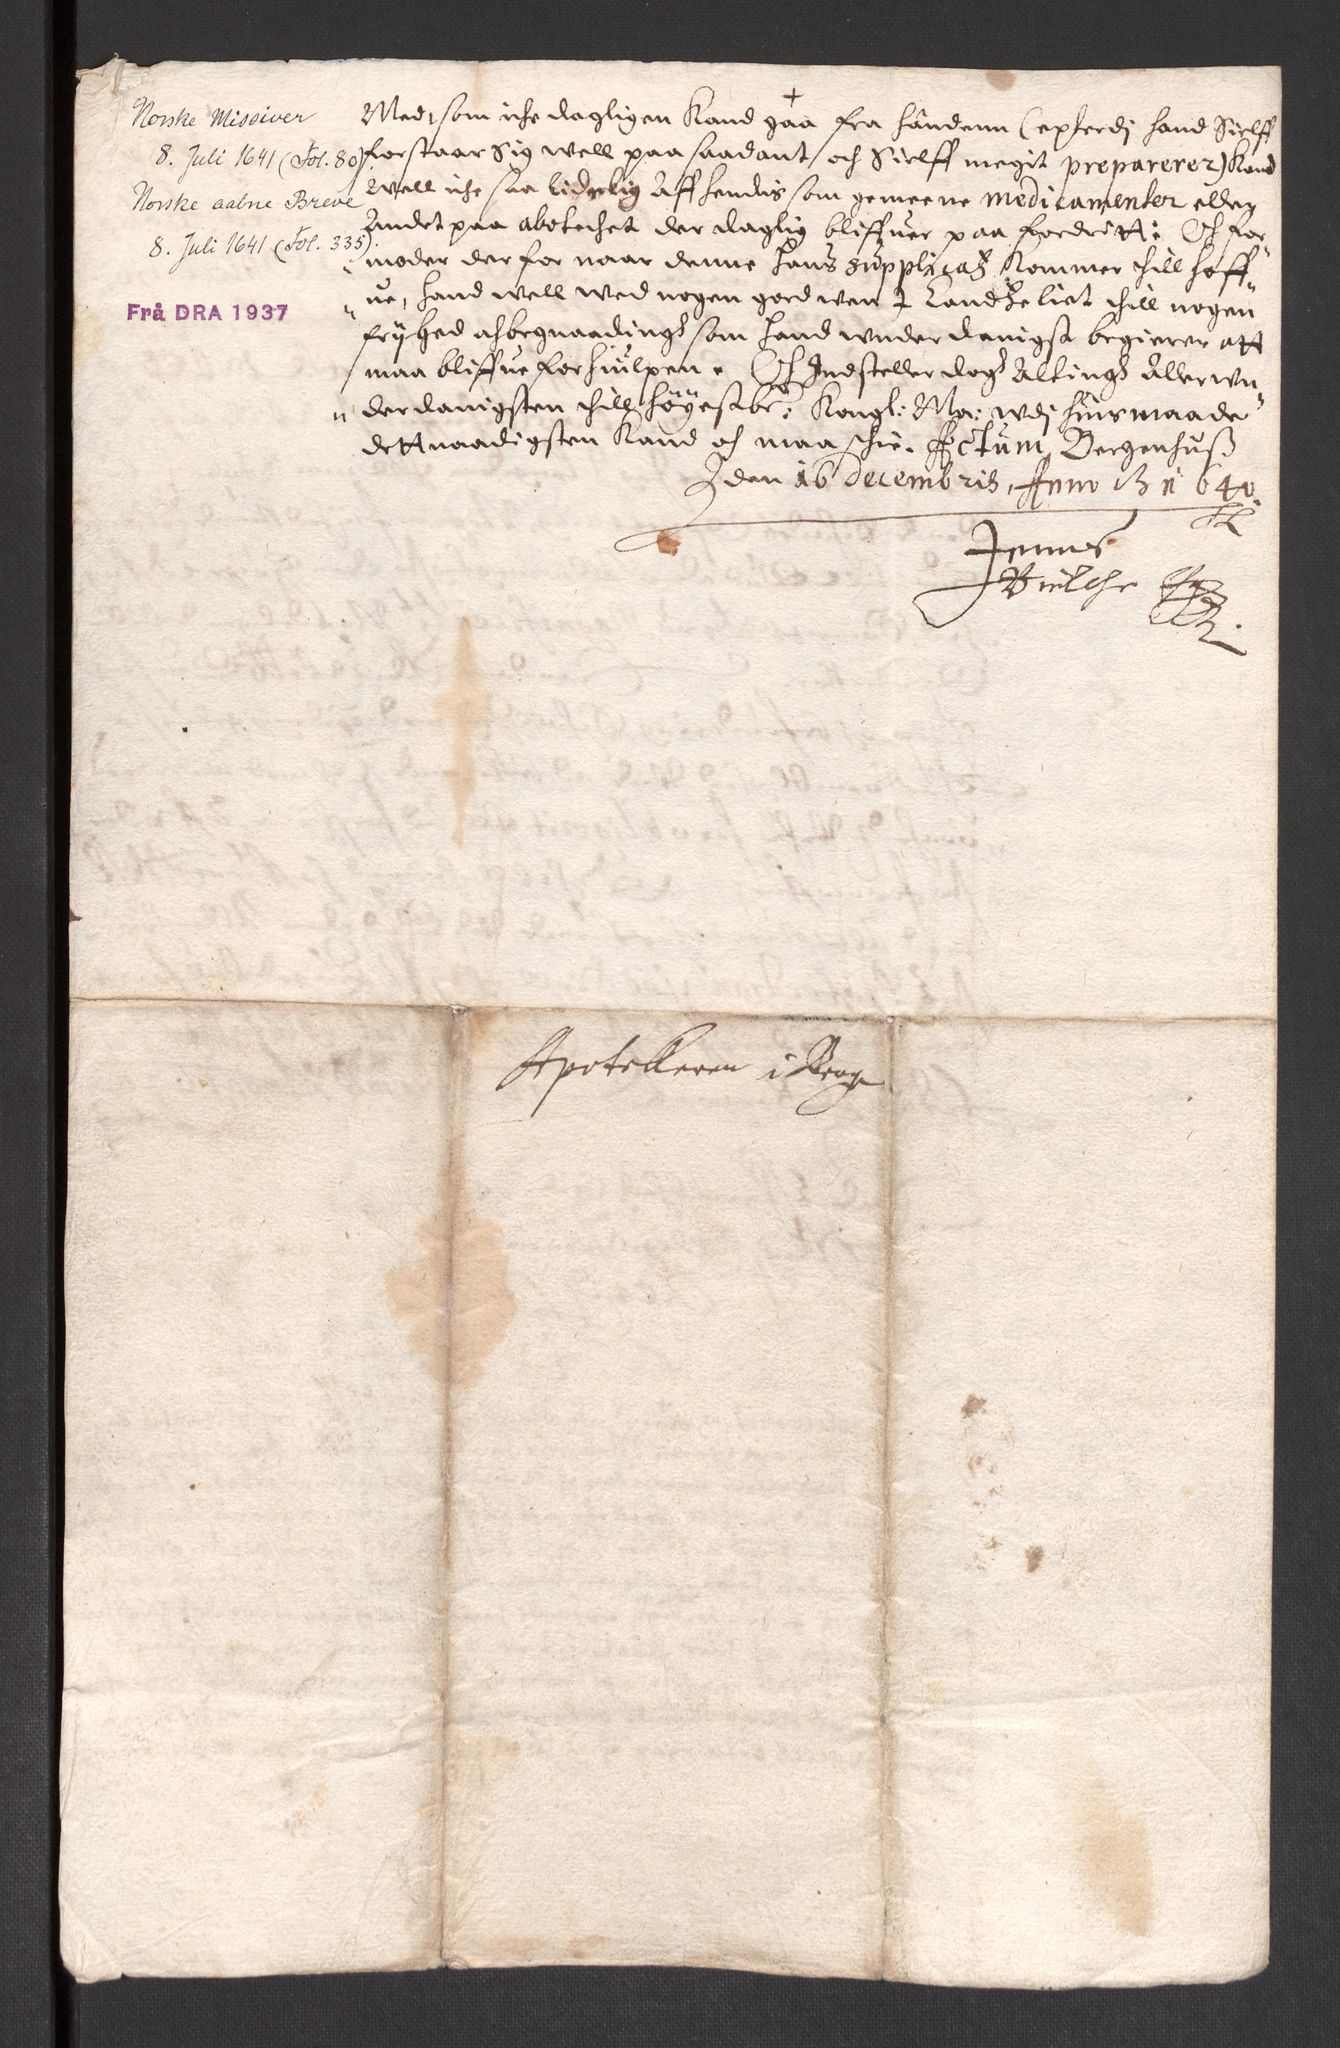 Norske Missiver
8. Juli 1641 (Fol. 80).
Norske aabne Breve
8. Juli 1641 (Fol. 335).
Frå DRA 1937
+
Med, som iche dagligen Kand gaa fra handenn (epterdj hand Sielff
forstaar Sig well paa saadant, och Sielff megit preparerer) Kand
well iche saa liderlig Affhendis som gemeene medicamenter eller
Andet paa abotechet der daglig bliffuer paa fordritt: Och for-
moder der for naar denne hans supplicaz Kommer thill hoff-
ue, hand well wed nogen goed wen I Landhe liet thill nogen
fryhed ah begnaading som hand wnderdanigst begierer att
maa bliffue forhiulpen. Och Indsteller dog Alting Allerwn
derdanigsten thill höyestbe: Kongl: Ma: wdj huis maade
dett naadigsten Kand och maa schie. Actum Bergenhuss
den 16 Decembris, Anno 1640.
Jenns
Bielche
Apotekeren i Berge